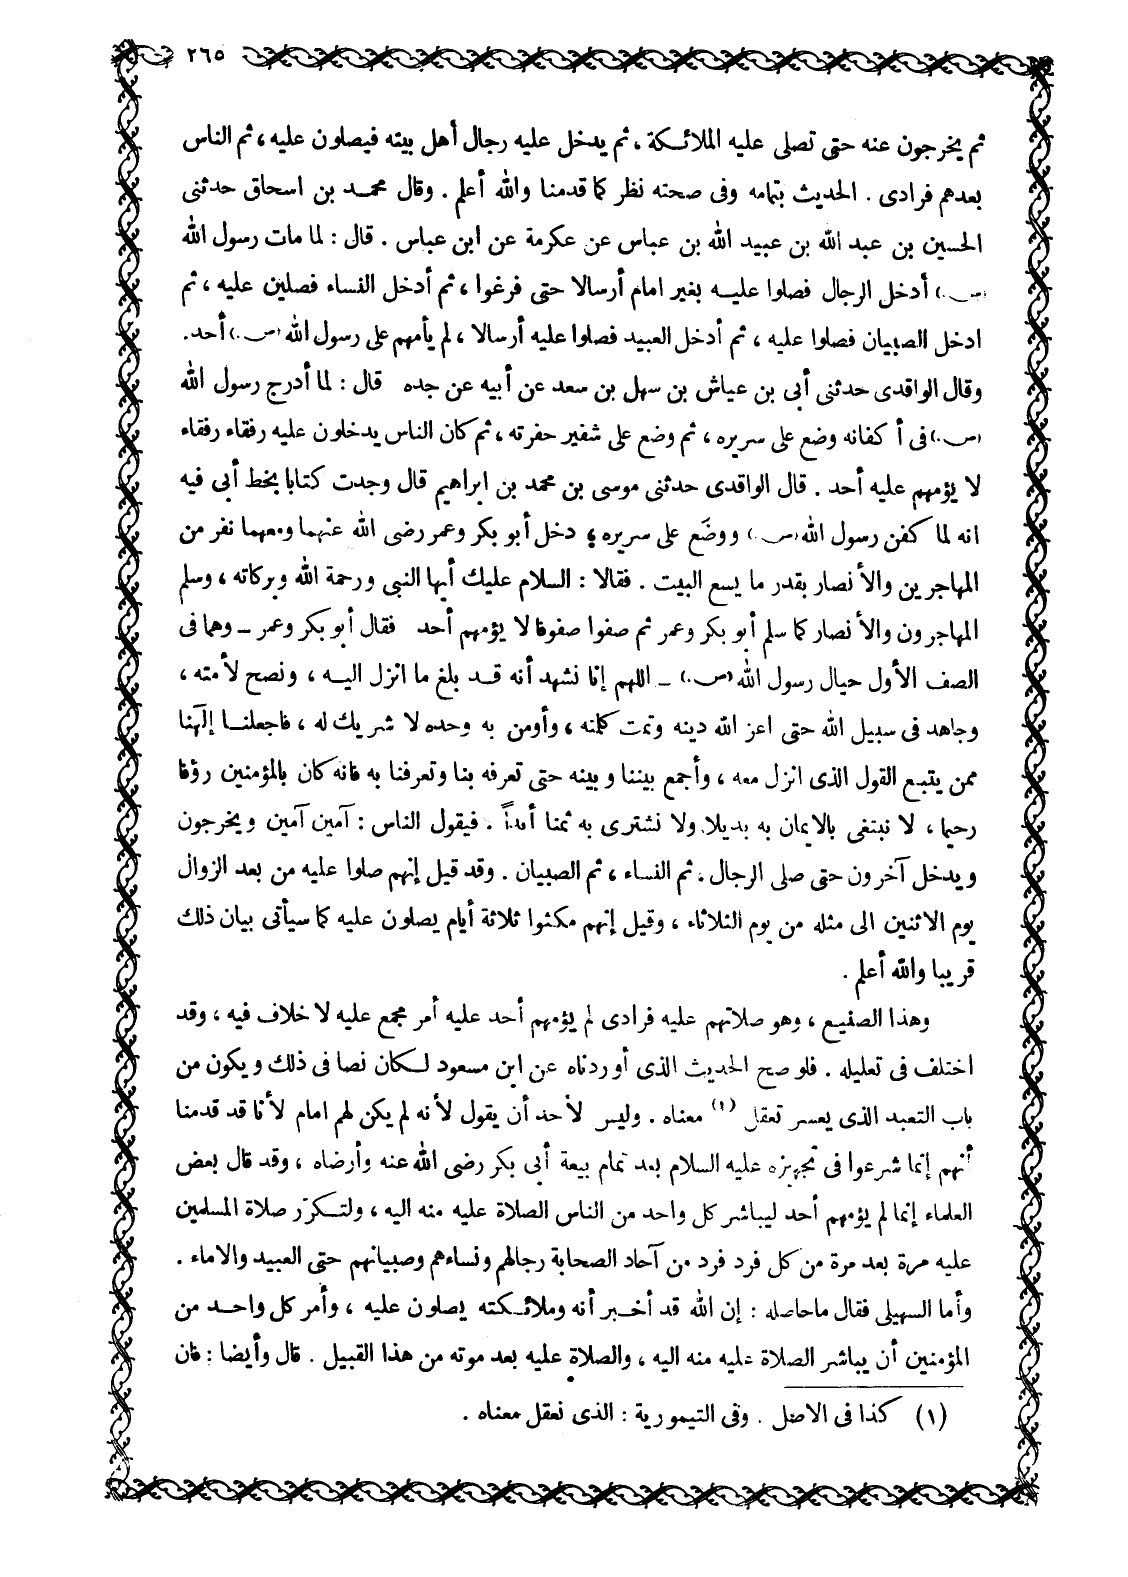 ٢٦٥
ثم يخرجون عنه حتى تصلى عليه الملائكة ، ثم يدخل عليه رجال أهل بيته فيصلون عليه ، ثم الناس
بعدهم فرادى . الحديث بتمامه وفى صحته نظر كما قدمنا والله أعلم . وقال محمد بن اسحاق حدثنى
الحسين بن عبد الله بن عبيد الله بن عباس عن عكرمة عن ابن عباس . قال : لما مات رسول الله
(ص.) أدخل الرجال فصلوا عليه بغير امام أرسالا حتى فرغوا ، ثم أدخل النساء فصلين عليه ، ثم
ادخل الصبيان فصلوا عليه ، ثم أدخل العبيد فصلوا عليه أرسالا ، لم يأمهم على رسول الله (ص.) أحد.
وقال الواقدى حدثنى أبى بن عياش بن سهل بن سعد عن أبيه عن جده قال : لما أدرج رسول الله
(ص.) فى أكفانه وضع على سريره ، ثم وضع على شفير حفرته ، ثم كان الناس يدخلون عليه رفقاء رفقاء
لا يؤمهم عليه أحد . قال الواقدى حدثنى موسى بن محمد بن ابراهيم قال وجدت كتابا بخط أبى فيه
انه لما كفن رسول الله (ص.) ووضَع على سريره ؛ دخل أبو بكر وعمر رضى الله عنهما ومعهما نفر من
المهاجرين والأنصار بقدر ما يسع البيت . فقالا : السلام عليك أيها النبى ورحمة الله وبركاته ، وسلم
المهاجرون والأنصار كما سلم أبو بكر وعمر ثم صفوا صفوفا لا يؤمهم أحد فقال أبو بكر وعمر ــ وهما فى
الصف الأول حيال رسول الله (ص.) ــ اللهم إنا نشهد أنه قد بلغ ما انزل اليه ، ونصح لأمته ،
وجاهد فى سبيل الله حتى اعز الله دينه وتمت كلمته ، وأومن به وحده لا شريك له ، فاجعلنا إلٓهنا
ممن يتبع القول الذى انزل معه ، وأجمع بيننا وبينه حتى تعرفه بنا وتعرفنا به فانه كان بالمؤمنين رؤفا
رحيما ، لا نبتغى بالايمان به بديلا ولا نشترى به ثمنا أبداً . فيقول الناس : آمين آمين ويخرجون
ويدخل آخرون حتى صلى الرجال ، ثم النساء ، ثم الصبيان . وقد قيل إنهم صلوا عليه من بعد الزوال
يوم الاثنين الى مثله من يوم الثلاثاء ، وقيل إنهم مكثوا ثلاثة أيام يصلون عليه كما سيأتى بيان ذلك
قريبا والله أعلم .
وهذا الصنيع ، وهو صلاتهم عليه فرادى لم يؤمهم أحد عليه أمر مجمع عليه لا خلاف فيه ، وقد
اختلف فى تعليله . فلو صح الحديث الذى أوردناه عن ابن مسعود لكان نصا فى ذلك ويكون من
باب التعبد الذى يعسر تعقل (١) معناه . وليس لأحد أن يقول لأنه لم يكن لهم امام لأنا قد قدمنا
أنهم إنما شرعوا فى تجهيزه عليه السلام بعد تمام بيعة أبى بكر رضى الله عنه وأرضاه ، وقد قال بعض
العلماء إنما لم يؤمهم أحد ليباشر كل واحد من الناس الصلاة عليه منه اليه ، ولتكرّر صلاة المسلمين
عليه مرة بعد مرة من كل فرد فرد من آحاد الصحابة رجالهم ونساءهم وصبيانهم حتى العبيد والاماء .
وأما السهيلى فقال ما حاصله : إن الله قد أخبر أنه وملائكته يصلون عليه ، وأمر كل واحد من
المؤمنين أن يباشر الصلاة عليه منه اليه ، والصلاة عليه بعد موته من هذا القبيل . قال وأيضا : فان
(١) كذا فى الاصل . وفى التيمورية : الذى نعقل معناه .